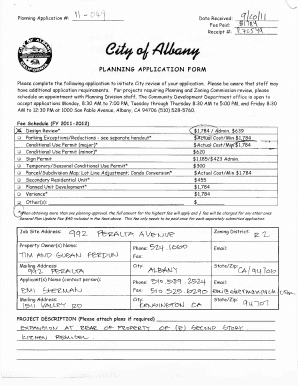 Planning Application #: 11-049
Date Received: 9/20/11
Fee Paid: $1784
Receipt #:
City of Albany
PLANNING APPLICATION FORM
Please complete the following application to initiate City review of your application. Please be aware that staff may have additional application requirements. For projects requiring Planning and Zoning Commission review, please schedule an appointment with Planning Division staff. The Community Development Department office is open to accept applications Monday, 8:30 AM to 7:00 PM, Tuesday through Thursday 8:30 AM to 5:00 PM, and Friday 8:30 AM to 12:30 PM at 1000 San Pablo Avenue, Albany, CA 94706 (510) 528-5760.
Fee Schedule (FY 2011-2012)
Design Review* $1,784 / Admin. $639
Parking Exceptions/Reductions – see separate handout* $Actual Cost/Min $1,784
Conditional Use Permit (major)* $Actual Cost/Min $1,784
Conditional Use Permit (minor)* $620
Sign Permit $1,085/$423 Admin.
Temporary/Seasonal Conditional Use Permit* $300
Parcel/Subdivision Map; Lot Line Adjustment; Condo Conversion* $Actual Cost/Min $1784
Secondary Residential Unit* $455
Planned Unit Development* $1784
Variance* $1784
Other(s): $
*When obtaining more than one planning approval, the full amount for the highest fee will apply and ½ fee will be charged for any other ones.
Job Site Address: 992 PERALTA AVENUE
Zoning District: R2
Property Owner(s) Name: TIM AND SUSAN FERDUN
Phone: 524.1000
Fax:
Email:
Mailing Address: 992 PERALTA
City: ALBANY
State/Zip: CA/94710
Applicant(s) Name (contact person): EMI SHERMAN
Phone: 510.539.3524
Fax: 510.525.0290
Email:
Mailing Address: 1511 VALLEY RD
City: KENSINGTON CA
State/Zip: 94707
PROJECT DESCRIPTION (Please attach plans if required)
EXPANSION AT REAR OF PROPERTY OF (E) SECOND STORY
KITCHEN REMODEL